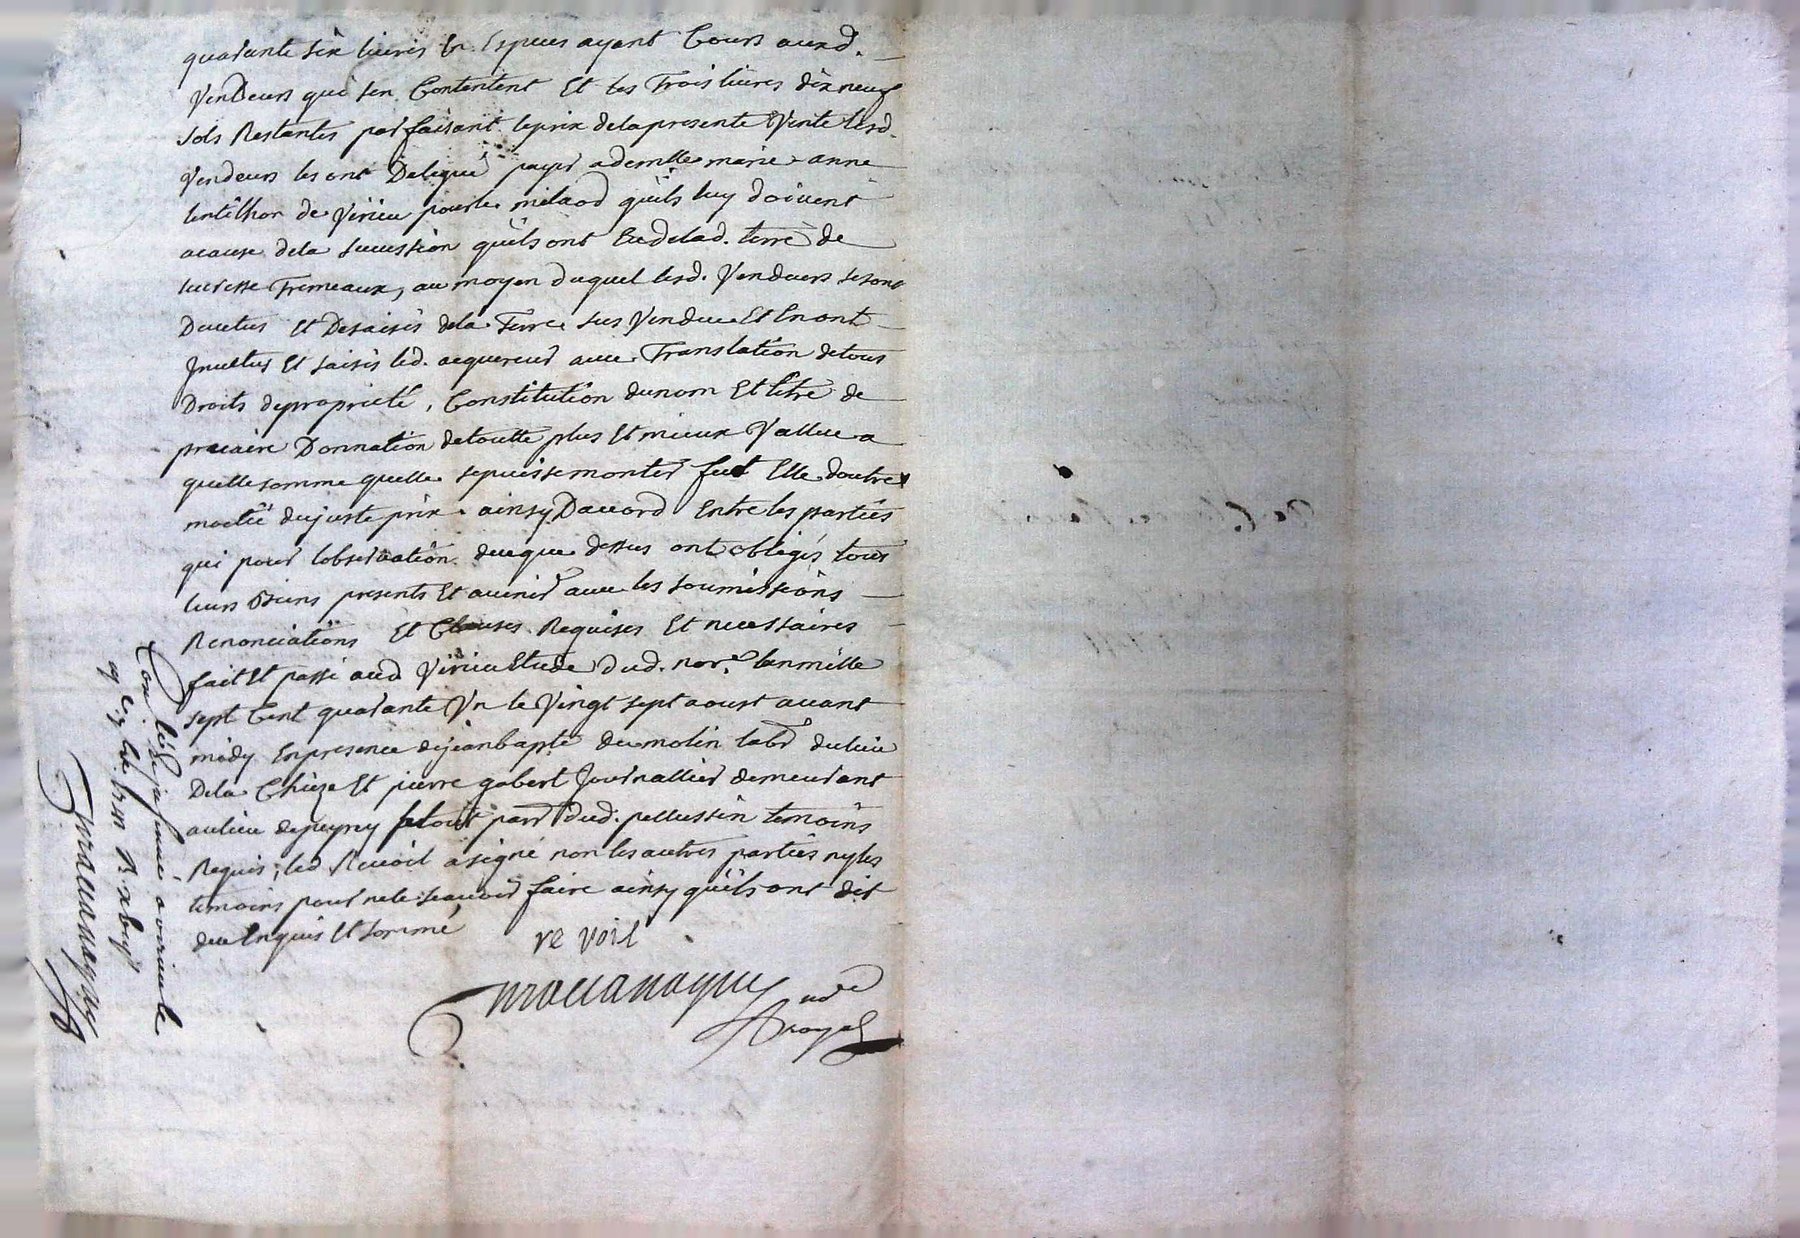 quarante six livres en Especes ayant Cours auxd.
Vendeurs qui sen Contentent Et les Trois livres dix neuf
sols Restantes parfaisant leprix delapresente Vente lesd.
Vendeurs les ont Delegué payer a demlle marie anne
de Virieu pour le milaod quils luy doivent
acause dela succession quils ont Eu delad. terre de
Fremeaux, au moyen duquel lesd. Vendeurs se sont
Devetus et Desaisis dela Terre sus Vendue Et En ont
Jnvetus Et saisis led. acquereur avec Translation detous
Droits depropriété, Constitution dunom Et titre de
precaire Donnation detoutte plus Et mieux Vallue a
quelle somme quelle sepuisse monter fut Elle doutre
moetié dujuste prix ainsy Daccord Entre les parties
qui pour lobservation duque dessus ont obligés tous
leurs Biens presents Et avenir avec les soumissions
Renonciations Et Clauses Requises Et necessaires
fait Et passé aud Virieu Etude Dud. nore. lanmille
sept Cent quarante Un le Vingt sept aoust avant
midy Enpresence dejeanbapte dumolin labr dulieu
Dela Chieze Et pierre gabert Journallier demeurant
aulieu depeyrey letout parr Dud. pellussin temoins
Requis; led Revoil a signé non les autres parties nyles
temoins pour nele scavoir faire ainsy quils ont dit
due Enquis Et sommé
re voil
nore
Royal